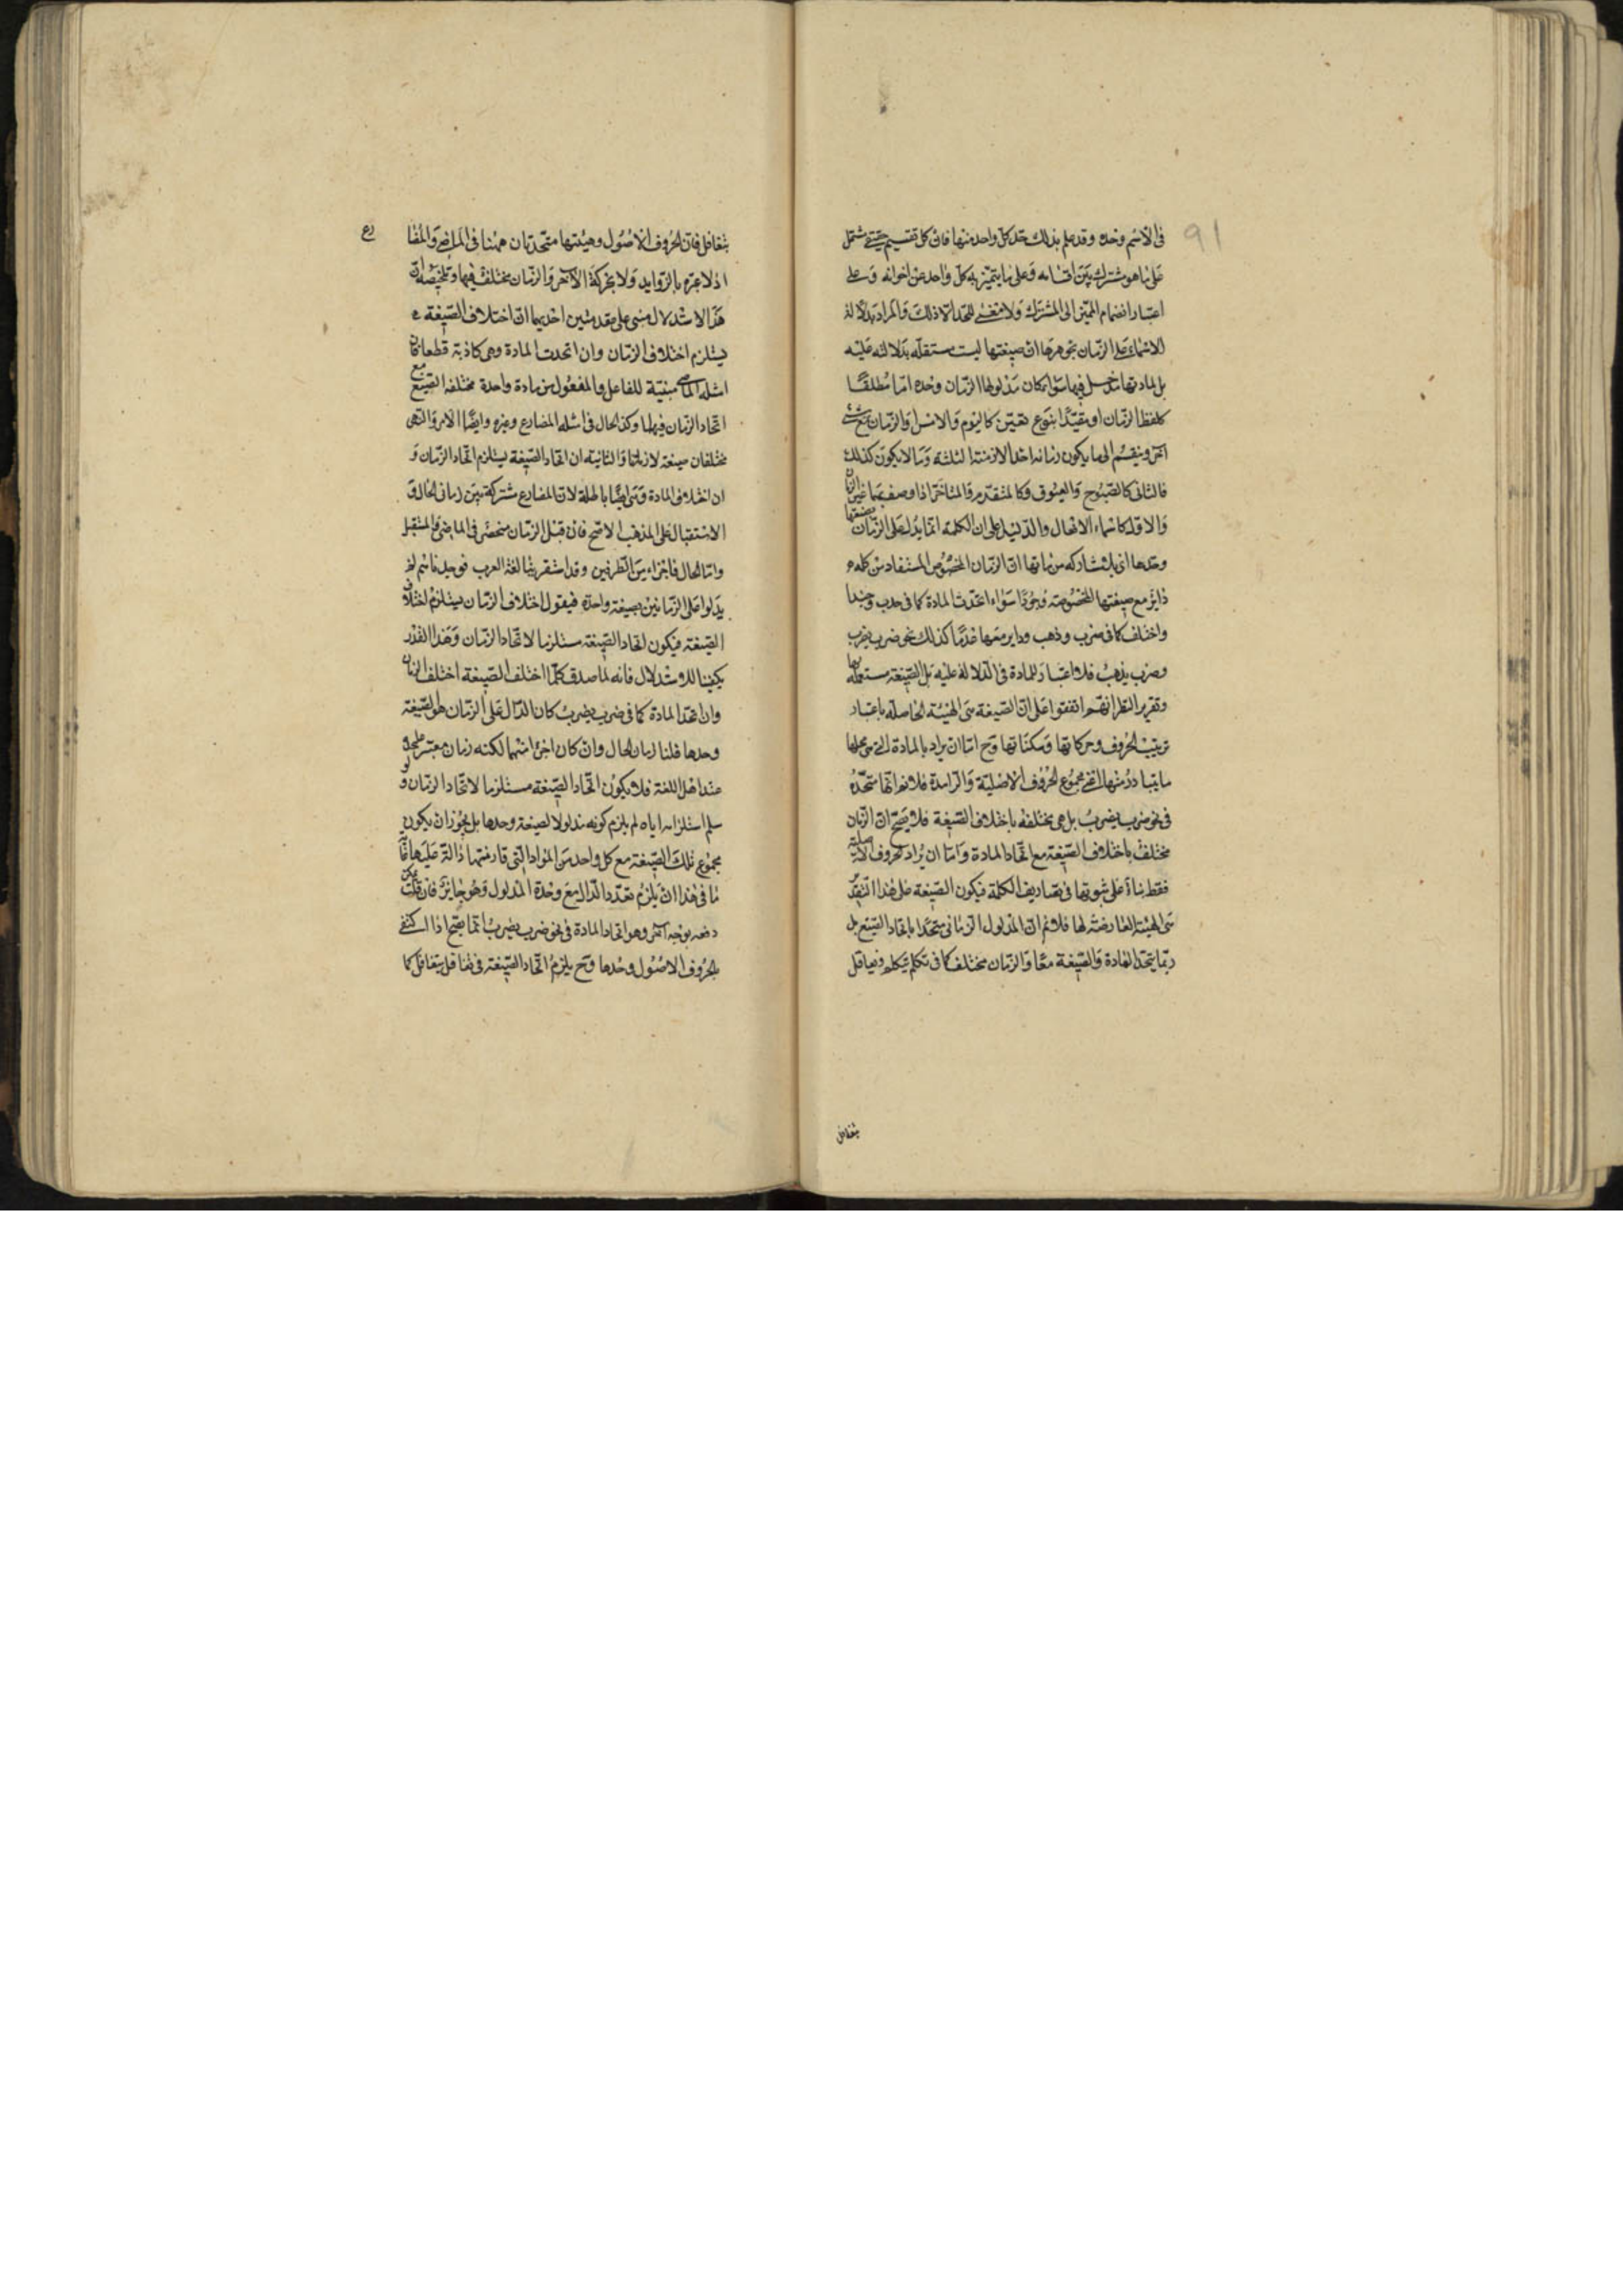 في الاسم وحده وقد علم بذلك حد كل واحد منها فان كل تقسيم حقيقي يشتمل
على ما هو مشترك بين اقسامه وعلى ما يتميز به كل واحد عن اخوانه وعلى
اعتبار انضمام المميز الى المشترك ولا معنى للتحديد الا ذلك والمراد بدلالة
الاسماء على الزمان بجوهرها ان صيغتها ليست مستقلة بدلالته عليه
بل لمادتها مدخل فيها سواء كان مدلولها الزمان وحده اما مطلقا
كلفظ الزمان او مقيدا بنوع تعين كاليوم والامس او الزمان مع شيء
آخر وينقسم الى ما يكون زمانه احد الازمنة الثلثة وما لا يكون كذلك
فالثاني كالصبوح والغبوق وكالمتقدم والمتاخر اذا وصف بهما غير الزمان
والاول كاسماء الافعال والدليل على ان الكلمة انما يدل على الزمان بصيغتها
وحدها اي بلا مشاركة من مادتها ان الزمان المخصوص المستفاد من كلمة
داير مع صيغتها المخصوصة وجودا سواء اتحدت المادة كما في
واختلف كما في ضرب وذهب وداير معها عدما كذلك نحو ضرب يضرب
وضرب يذهب فلا اعتبار للمادة في الدلالة عليه بل الصيغة مستقلة بها
وتقرير النظر انهم اتفقوا على ان الصيغة هي الهيئة الحاصلة باعتبار
ترتيب الحروف وحركاتها وسكناتها وح اما ان يراد بالمادة التي هي محلها
ما يتبادر منها اعني مجموع الحروف الاصلية والزايدة فلا نم انها متحدة
في نحو ضرب يضرب بل هي مختلفة باختلاف الصيغة فلا يصح ان الزمان
مختلف باختلاف الصيغة مع اتحاد المادة واما ان يراد الحروف الاصلية
فقط بناء على ثبوتها في تصاريف الكلمة فيكون الصيغة على هذا التقدير
هي الهيئة العارضة لها فلا نم ان المدلول الزماني متحد باتحاد الصيغ بل
ربما يتحد المادة والصيغة معا والزمان مختلف كما في تكلم يتكلم وتغافل
يتغافل
يتغافل فان الحروف الاصول وهيئتها متحدتان ههنا في الماضي والمضا
رع
اذ لا عبرة بالزوايد ولا بحركة الآخر والزمان مختلف فيهما وتلخيصه ان
هذا الاستدلال مبني على مقدمتين احديهما ان اختلاف الصيغة
يستلزم اختلاف الزمان وان اتحدت المادة وهي كاذبة قطعا فان
امثلة الماضي مبنية للفاعل والمفعول من مادة واحدة مختلفة الصيغ مع
اتحاد الزمان فيهما وكذا الحال في امثلة المضارع وغيره وايضا الامر والنهي
مختلفان صيغة لا زمانا والثانية ان اتحاد الصيغة يستلزم اتحاد الزمان و
ان اختلاف المادة وهي ايضا باطلة لان المضارع مشترك بين زماني الحال و
الاستقبال على المذهب الاصح فان قيل الزمان منحصر في الماضي والمستقبل
واما الحال فاجزاء من الطرفين وقد استقرينا لغة العرب فوجدناهم لم
يدلوا على الزمانين بصيغة واحدة فيقول اختلاف الزمان يستلزم اختلاف
الصيغة فيكون اتحاد الصيغة مستلزما لاتحاد الزمان وهذا القدر
يكفينا للاستدلال فانه لما صدق كلما اختلف الصيغة اختلف الزمان
وان اتحد المادة كما في ضرب يضرب كان الدال على الزمان هو الصيغة
وحدها قلنا زمان الحال وان كان اجزاء منهما لكنه زمان معتبر على حدة
عند اهل اللغة فلا يكون اتحاد الصيغة مستلزما لاتحاد الزمان ولو
سلم استلزامه اياه لم يلزم كونه مدلولا لصيغة وحدها بل يجوز ان يكون
مجموع تلك الصيغة مع كل واحد من المواد التي قارنتها دالة عليها غاية
ما في هذا ان يلزم تعدد الدال مع وحدة المدلول وهو جايز فان قلت يمكن
دفعه بوجه آخر وهو اتحاد المادة في نحو ضرب يضرب انما يصح اذا اكتفي
بالحروف الاصول وحدها وح يلزم اتحاد الصيغة في تغافل يتغافل كما
91